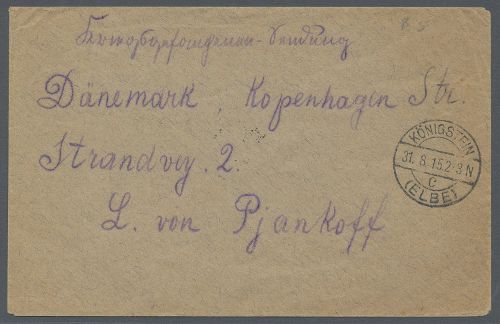 Kriegsgefangenen-Sendung
Dänemark, Kopenhagen Str.
Strandvej. 2.
L. von Pjankoff
KÖNIGSTEIN
31.8.15.2-3N
C
(ELBE)